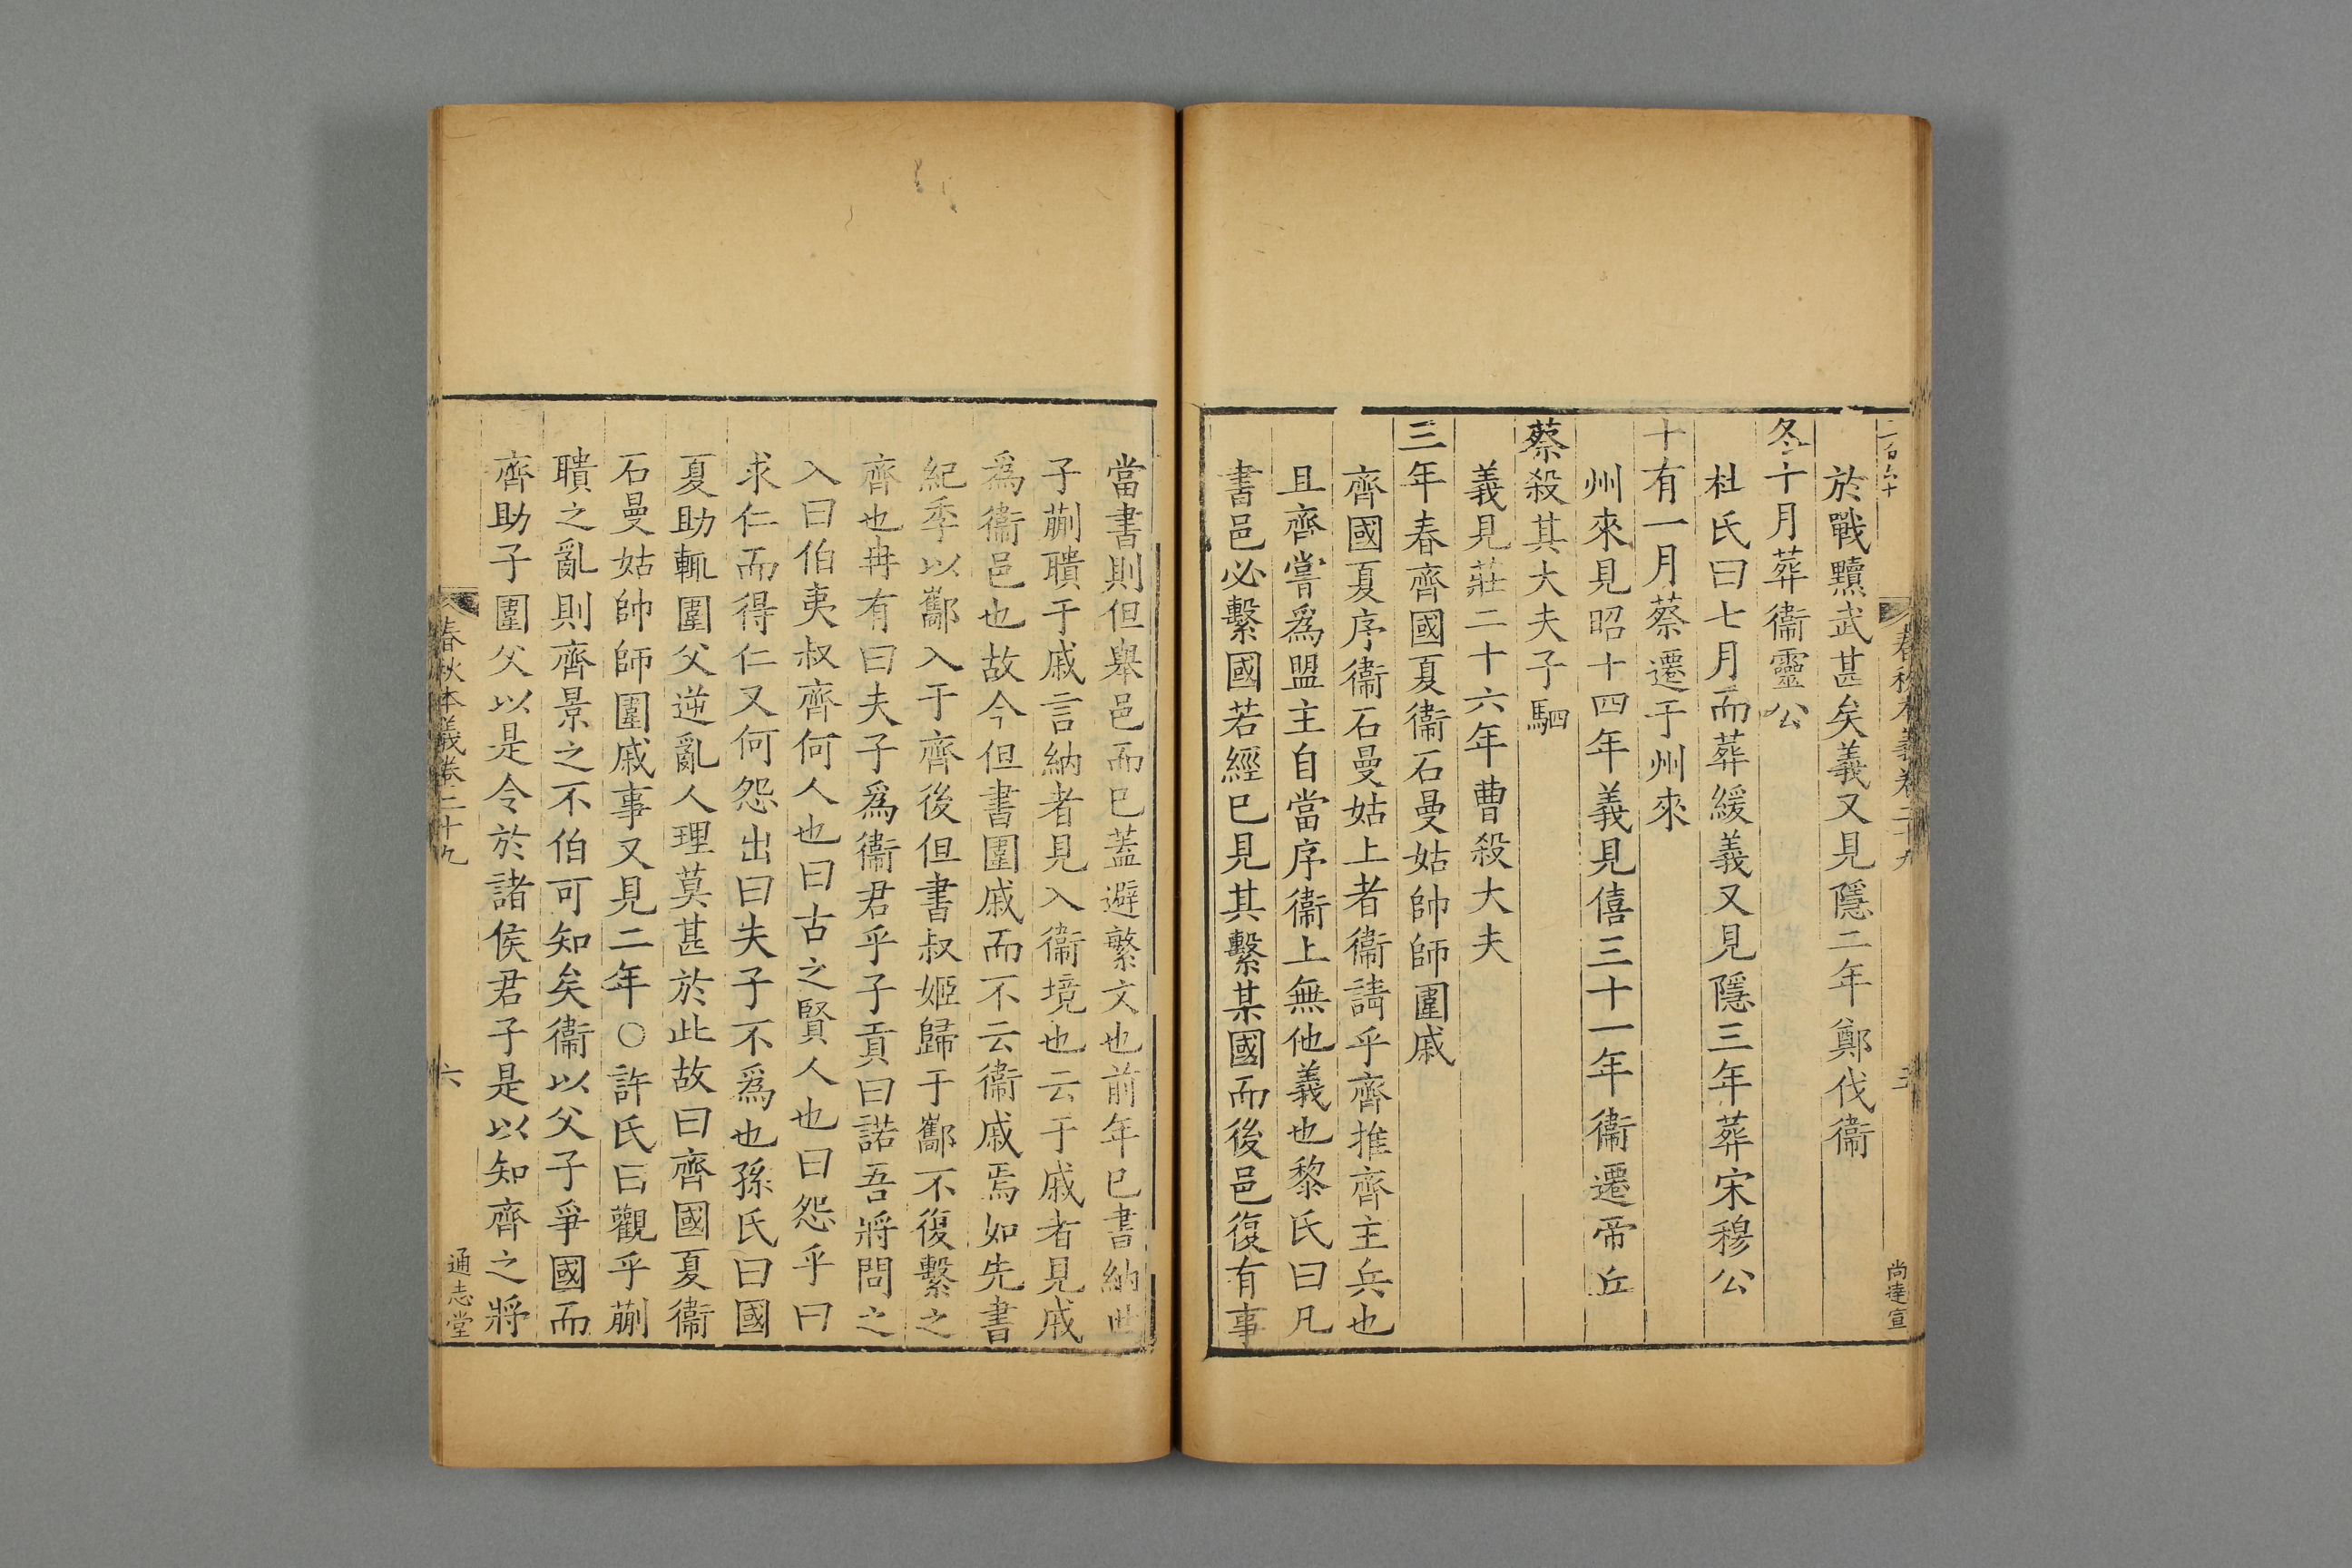 二百六十
春秋本義卷二十九
五
尚達宣
於戰黷武甚矣義又見隱二年鄭伐衞
冬十月葬衞靈公
杜氏曰七月而葬緩義又見隱三年葬宋穆公
十有一月蔡遷于州來
州來見昭十四年義見僖三十一年衞遷帝丘
蔡殺其大夫子駟
義見莊二十六年曹殺大夫
三年春齊國夏衞石曼姑帥師圍戚
齊國夏序衞石曼姑上者衞請乎齊推齊主兵也
且齊嘗爲盟主自當序衞上無他義也黎氏曰凡
書邑必繫國若經已見其繫某國而後邑復有事
當書則但舉邑而已蓋避繁文也前年已書納世
子蒯聵于戚言納者見入衞境也云于戚者見戚
爲衞邑也故今但書圍戚而不云衞戚焉如先書
紀季以酅入于齊後但書叔姬歸于酅不復繫之
齊也冉有曰夫子爲衞君乎子貢曰諾吾將問之
入曰伯夷叔齊何人也曰古之賢人也曰怨乎曰
求仁而得仁又何怨出曰夫子不爲也孫氏曰國
夏助輒圍父逆亂人理莫甚於此故曰齊國夏衞
石曼姑帥師圍戚事又見二年○許氏曰觀乎蒯
聵之亂則齊景之不伯可知矣衞以父子爭國而
齊助子圍父以是令於諸侯君子是以知齊之將
春秋本義卷二十九
六
通志堂